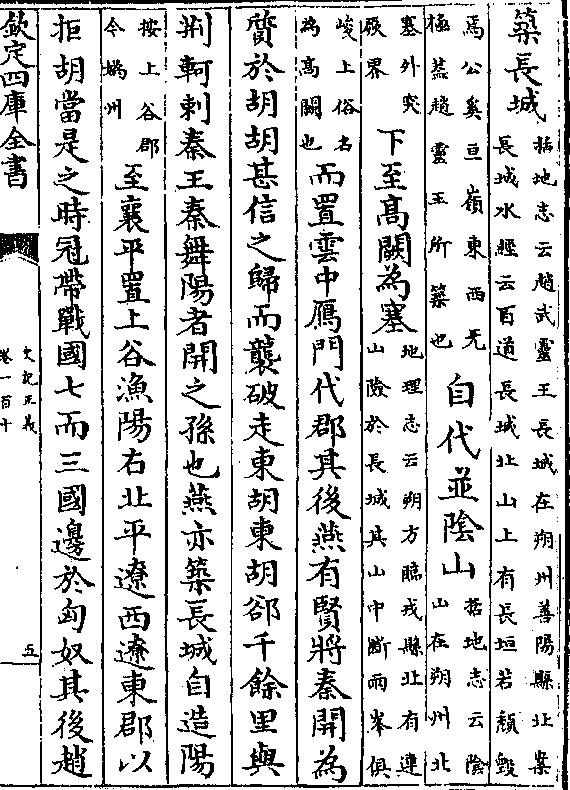 築長城括地志云趙武靈王長城在朔州善陽縣北案長城水經云百道長城北山上有長垣若頹毀
焉公奚亘嶺東西无極蓋趙靈王所築也自代並陰山括地志云陰山在朔州北
塞外突厥界下至高闕為塞地理志云朔方臨戎縣北有連山險於長城其山中斷兩峯俱
峻上俗名為高闕也而置雲中鴈門代郡其後燕有賢將秦開為
質於胡胡甚信之歸而襲破走東胡東胡郤千餘里與
荆軻刺秦王秦舞陽者開之孫也燕亦築長城自造陽
按上谷郡今媯州至襄平置上谷漁陽右北平遼西遼東郡以
拒胡當是之時冠帶戰國七而三國邊於匈奴其後趙
欽定四庫全書
史記正義
卷一百十
五